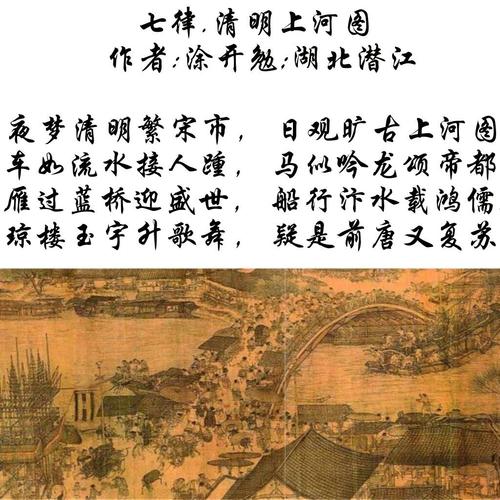 七律.清明上河图
作者:涂开勉;湖北潜江
夜梦清明繁宋市, 日观旷古上河图
车如流水接人踵, 马似吟龙颂帝都
雁过蓝桥迎盛世, 船行汴水载鸿儒
琼楼玉宇升歌舞, 疑是前唐又复苏